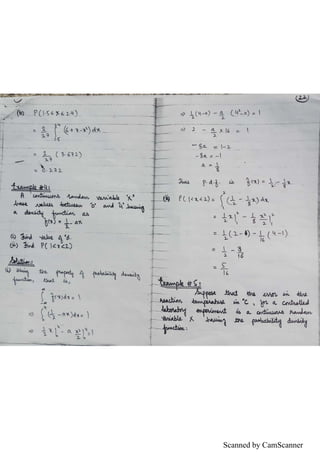 (b) P(1.5≤x≤2.4)
= 2/27 ∫ (6+x-x²)dx
= 2/27 (3.672)
= 0.272
Example #4:
A continuous random variable 'X'
have values between '0' and '4' having
a density function as
f(x) = 1/2 - ax
(i) Find value of 'a'
(ii) Find P(1<X<2)
Solution:
(i) Using the property of probability density
function, that is,
∫ f(x)dx = 1
⇒ ∫ (1/2 - ax)dx = 1
⇒ 1/2 x |⁴₀ - a x²/2 |⁴₀ = 1
(22)
⇒ 1/2 (4-0) - a/2 (4²-0) = 1
⇒ 2 - a/2 × 16 = 1
-8a = 1-2
-8a = -1
a = 1/8
Thus p.d.f. is f(x) = 1/2 - 1/8 x.
(ii) P(1<X<2) = ∫²₁ (1/2 - 1/8 x)dx
= 1/2 x |²₁ - 1/8 x²/2 |²₁
= 1/2 (2-1) - 1/16 (4-1)
= 1/2 - 3/16
= 5/16
Example #5:
Suppose that the error in the
reaction temperature in °C, for a controlled
laboratory experiment is a continuous random
variable X having the probability density
function:
Scanned by CamScanner